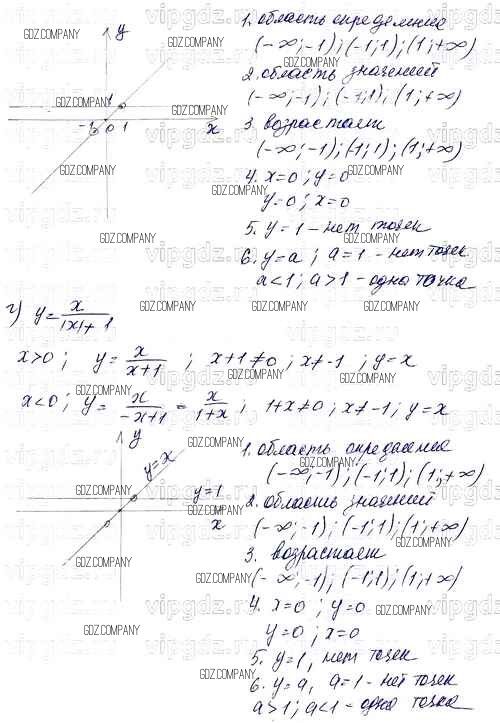 y
1
-1 0 1
x
1. область определения
(-∞; -1); (-1; 1); (1; +∞)
2. область значений
(-∞; -1); (-1; 1); (1; +∞)
3. возрастает
(-∞; -1); (1; 1); (1; +∞)
4. x=0; y=0
y=0; x=0
5. y=1 - нет точек
6. y=a; a=1 - нет точек
a<1; a>1 - одна точка
г) y = x/|x|+1
x>0; y = x/x+1; x+1≠0; x≠-1; y=x
x<0; y = x/-x+1 = x/1+x; 1+x≠0; x≠-1; y=x
y
y=x
y=1
x
1. область определения
(-∞; -1); (-1; 1); (1; +∞)
2. область значений
(-∞; -1); (-1; 1); (1; +∞)
3. возрастает
(-∞; -1); (-1; 1); (1; +∞)
4. x=0; y=0
y=0; x=0
5. y=1, нет точек
6. y=a, a=1 - нет точек
a>1; a<1 - одна точка
GDZ.COMPANY
vipgdz.ru